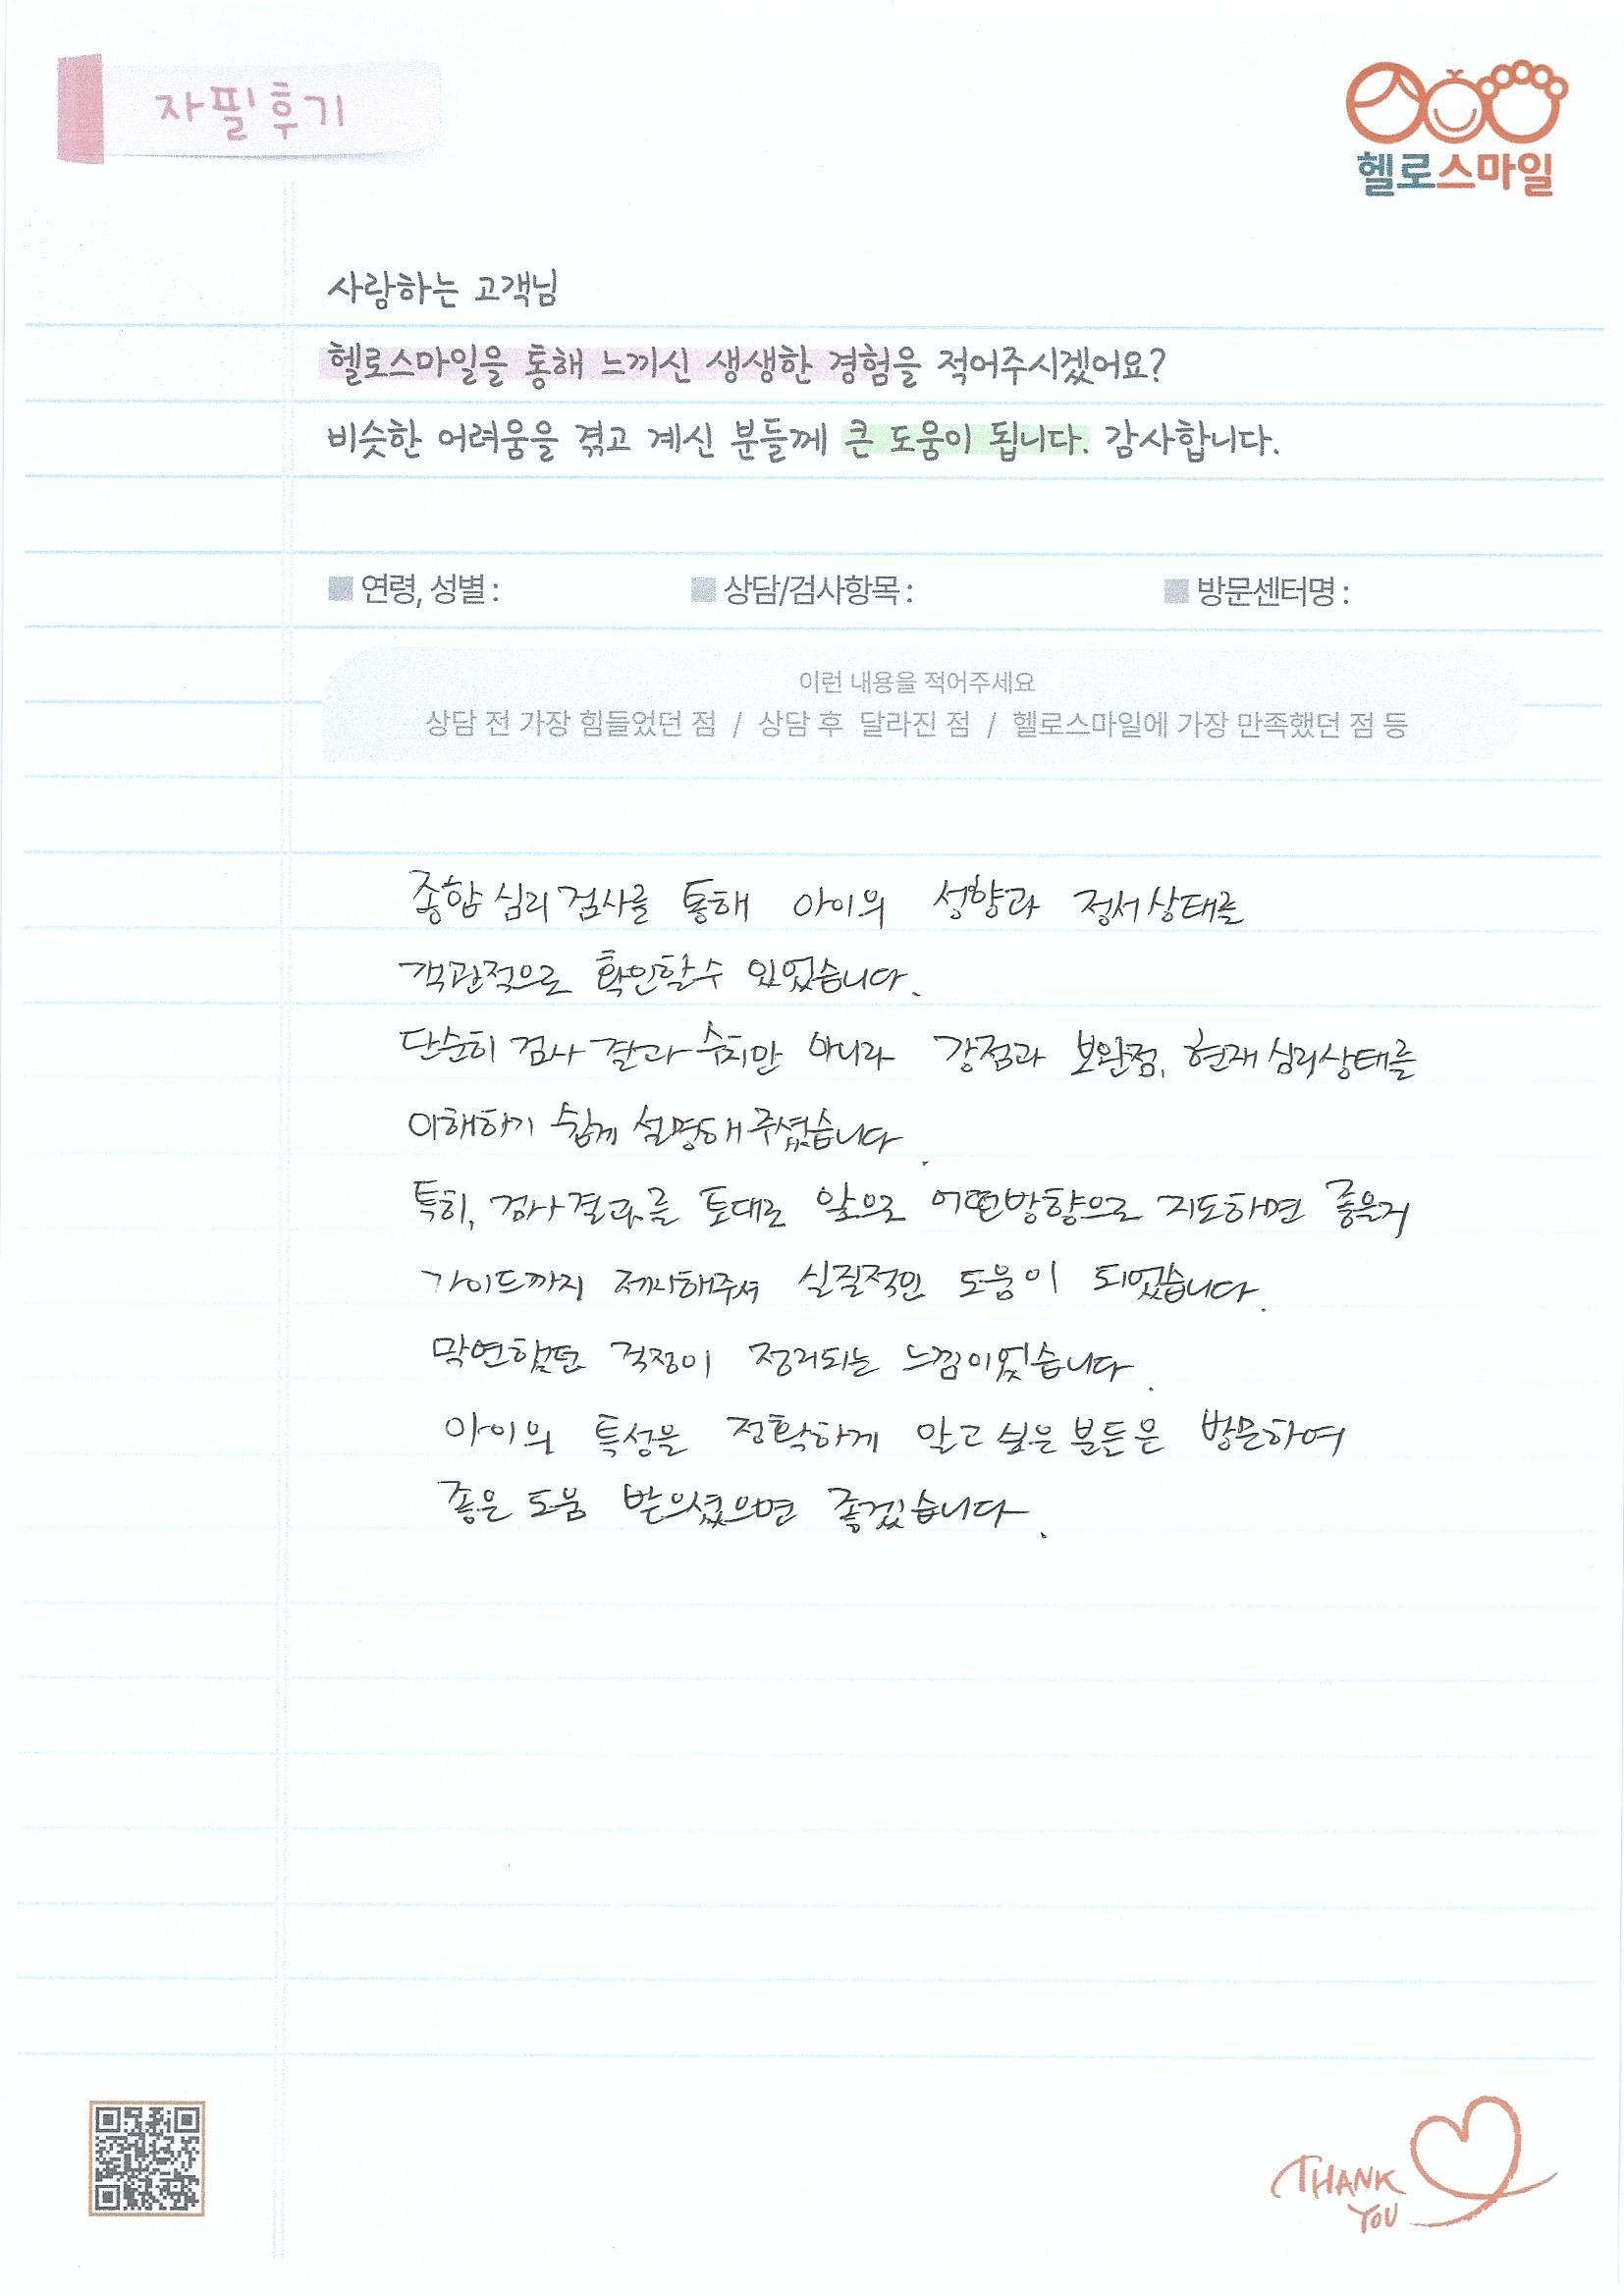 자필후기
헬로스마일
사랑하는 고객님
헬로스마일을 통해 느끼신 생생한 경험을 적어주시겠어요?
비슷한 어려움을 겪고 계신 분들께 큰 도움이 됩니다. 감사합니다.
■ 연령, 성별 : ■ 상담/검사항목 : ■ 방문센터명 :
이런 내용을 적어주세요
상담 전 가장 힘들었던 점 / 상담 후 달라진 점 / 헬로스마일에 가장 만족했던 점 등
종합심리검사를 통해 아이의 성향과 정서상태를
객관적으로 확인할수 있었습니다.
단순히 검사 결과 수치만 아니라 강점과 보완점, 현재 심리상태를
이해하기 쉽게 설명해주셨습니다.
특히, 검사결과를 토대로 앞으로 어떤방향으로 지도하면 좋을지
가이드까지 제시해주셔 실질적인 도움이 되었습니다.
막연했던 걱정이 정리되는 느낌이었습니다.
아이의 특성을 정확하게 알고싶은 분들은 방문하여
좋은 도움 받으셨으면 좋겠습니다.
THANK
YOU